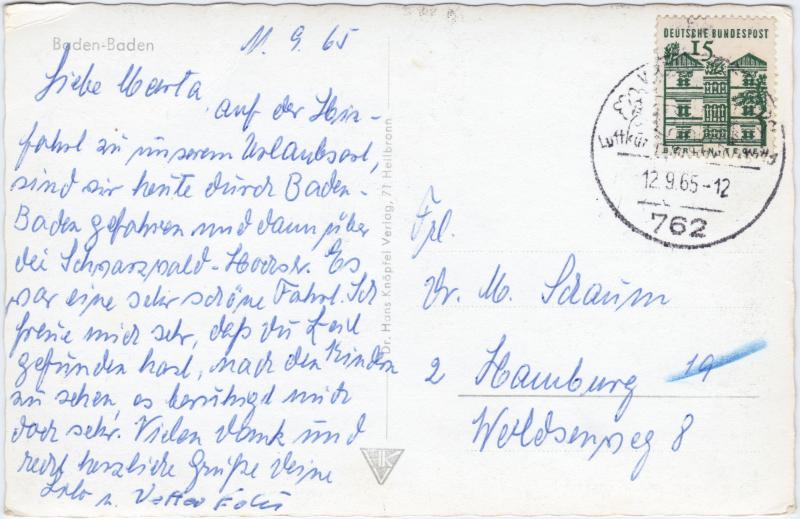 Baden-Baden
11. 9. 65
Liebe Marta
auf der Hin-
fahrt zu unserem Urlaubsort,
sind wir heute durch Baden-
Baden gefahren und dann über
die Schwarzwald-Hochstr. Es
war eine sehr schöne Fahrt. Ich
freue mich sehr, daß du Zeit
gefunden hast, nach den Kindern
zu sehen, es beruhigt mich
doch sehr. Vielen Dank und
recht herzliche Grüße deine
Lilo u. Vetter
Dr. Hans Knöpfel Verlag, 71 Heilbronn
DEUTSCHE BUNDESPOST
15
Luftkur
12.9.65-12
762
Frl.
Dr. M. Schaum
2 Hamburg 19
Weldsenweg 8